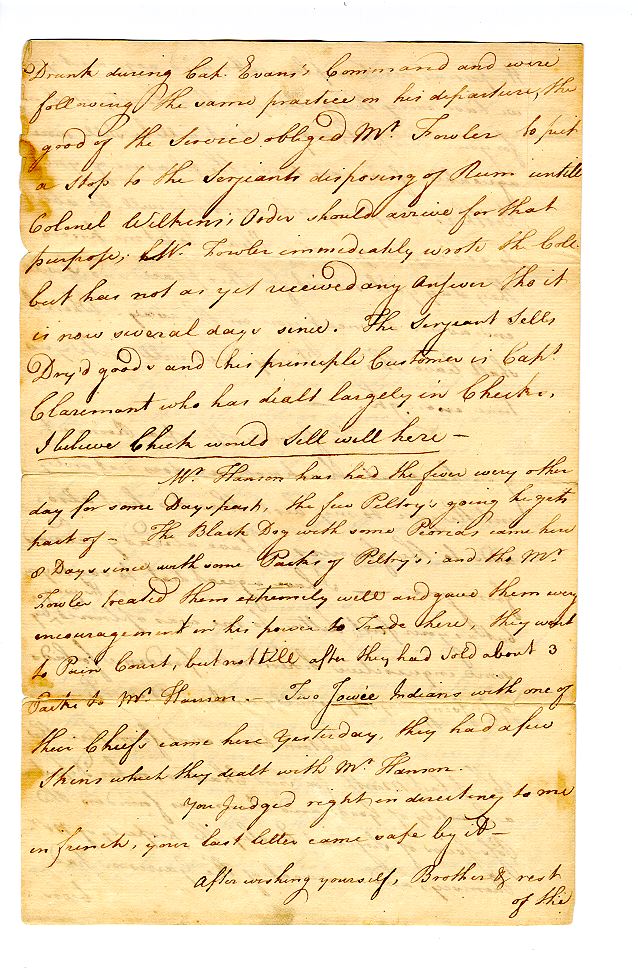 Drunk during Cap. Evans's Command and were
following the same practice on his departure, the
good of the Service obliged Mr. Fowler to put
a Stop to the Serjeants disposing of Rum untill
Colonel Wilkins's Order should arrive for that
purpose, Mr. Fowler immediately wrote the Coll.
but has not as yet received any Answer tho it
is now several days since. The Serjeant Sells
Dry'd goods and his principle Customer is Capt.
Claremont who has dealt largely in Checks,
I believe Check would Sell well here —
Mr. Hanson has had the fever every other
day for some Days past, the few Peltry's going he gets
part of — The Black Dog with some Peorias came here
8 Days since with some Packs of Peltry's; and tho Mr.
Fowler treated them extremely well and gave them every
encouragement in his power to Trade here, they went
to Pain Court, but not till after they had sold about 3
Packs to Mr. Hanson. — Two Jowée Indians with one of
their Chiefs came here Yesterday, they had a few
Skins which they dealt with Mr. Hanson.
You Judged right in directing to me
in french, your last letter came safe by it —
After wishing yourself, Brother & rest
of the